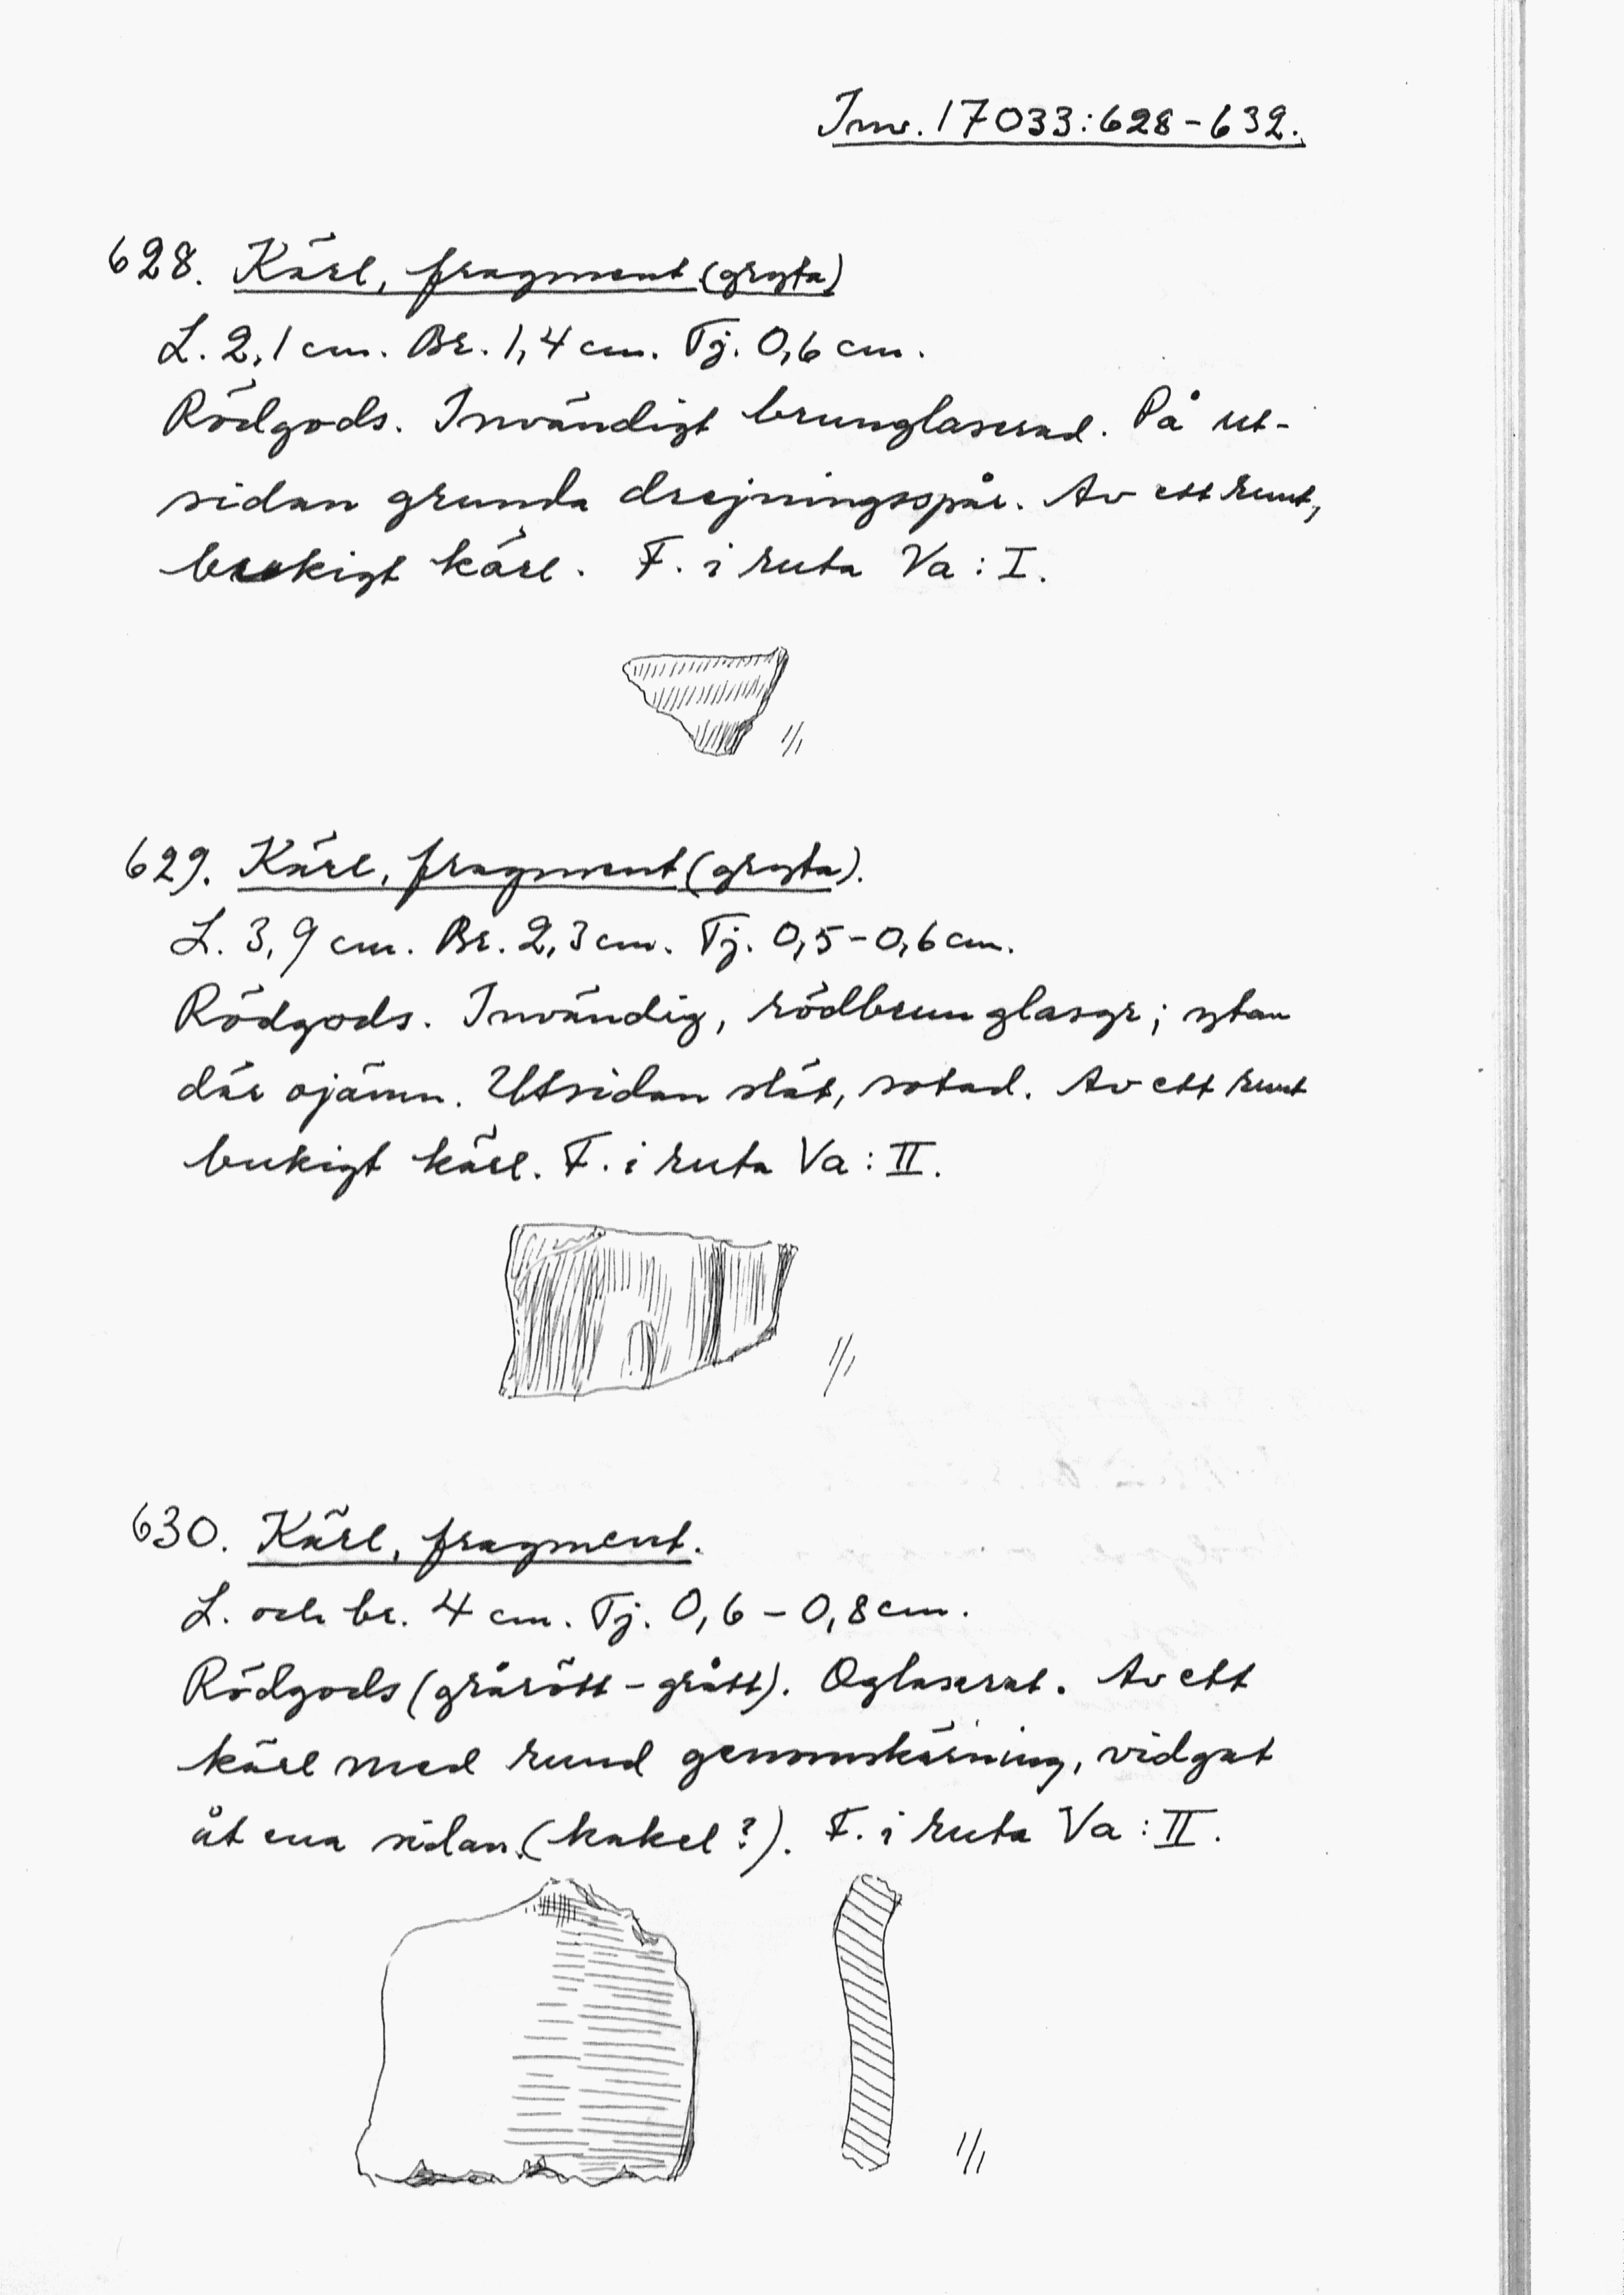 Inv. 17033:628-632.
628. Kärl, fragment (gryta)
L. 2,1 cm. Br. 1,4 cm. Tj. 0,6 cm.
Rödgods. Invändigt brunglaserad. På ut-
sidan grunda drejningsspår. Av ett runt,
bukigt kärl. F. i ruta Va : I.
1/1
629. Kärl, fragment (gryta).
L. 3,9 cm. Br. 2,3 cm. Tj. 0,5-0,6 cm.
Rödgods. Invändig, rödbrun glasyr; ytan
där ojämn. Utsidan slät, sotad. Av ett runt
bukigt kärl. F. i ruta Va : II.
1/1
630. Kärl, fragment.
L. och br. 4 cm. Tj. 0,6 - 0,8 cm.
Rödgods (grårött - grått). Oglaserat. Av ett
kärl med rund genomskärning, vidgat
åt ena sidan. (kakel?). F. i ruta Va : II.
1/1